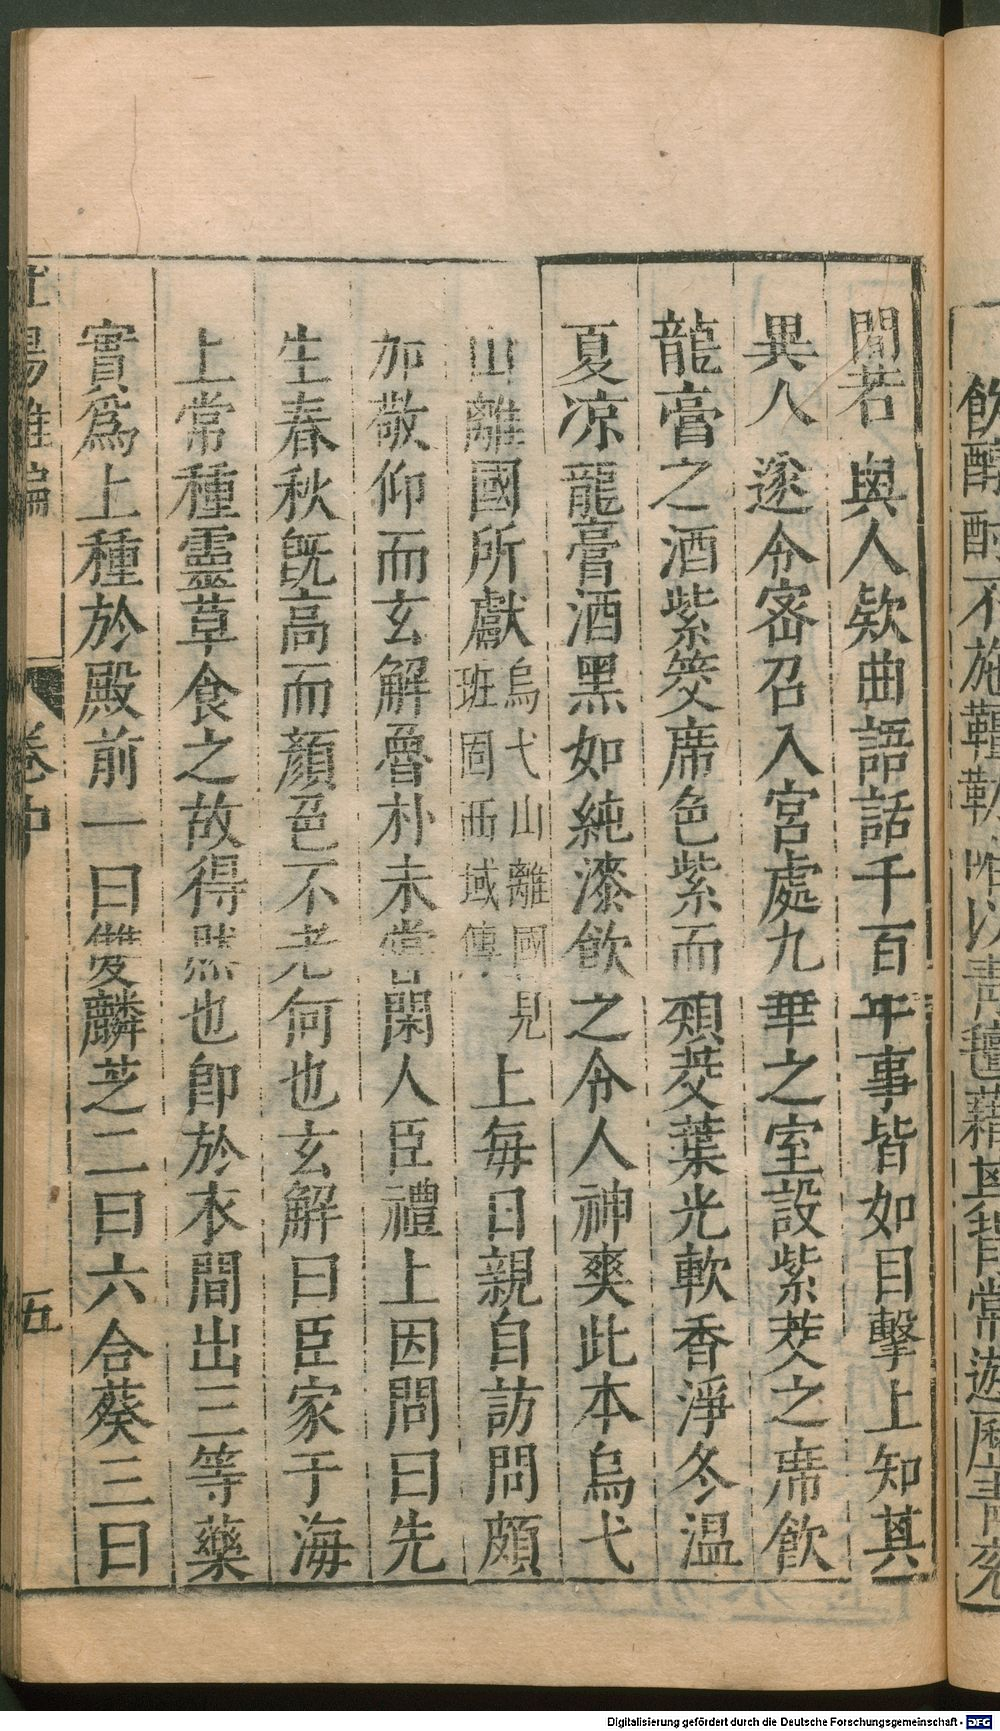 間若與人欵曲語話千百年事皆如目擊上知其
異人遂令宻召入宮處九華之室設紫茭之席飲
龍膏之酒紫茭席色紫而類茭葉光軟香淨冬温
夏凉龍膏酒黑如純漆飲之令人神爽此本烏弋
山離國所獻烏弋山離國見班固西域傳上每日親自訪問頗
加敬仰而玄解魯朴未嘗閑人臣禮上因問曰先
生春秋旣高而顔色不老何也玄解曰臣家于海
上常種靈草食之故得然也卽於衣間出三等藥
實爲上種於殿前一曰雙麟芝二曰六合葵三曰
陽雜編 卷中 五
飲酎不施韉勒惟以青氊藉其背常遊歷青兖
Digitalisierung gefördert durch die Deutsche Forschungsgemeinschaft - DFG